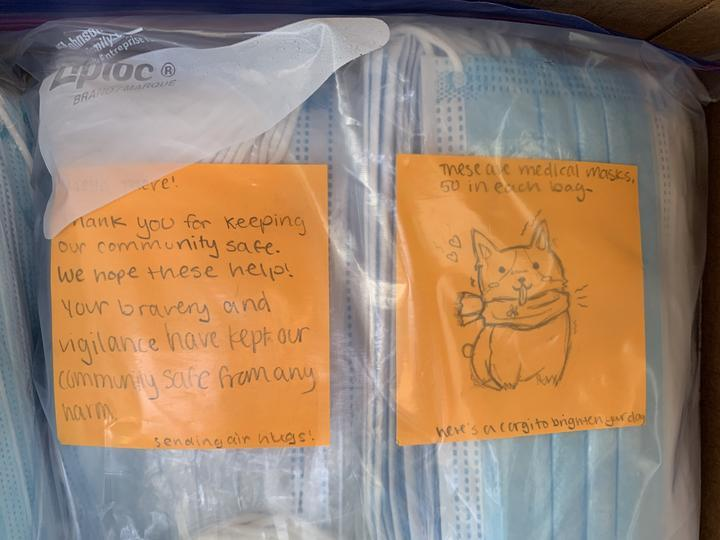 Johnson
Family
Entreprise
Ziploc®
BRAND/MARQUE
there!
Thank you for keeping
our community safe.
We hope these help!
Your bravery and
vigilance have kept our
community safe from any
harm.
sending air hugs!
These are medical masks,
50 in each bag-
here's a corgi to brighten your day